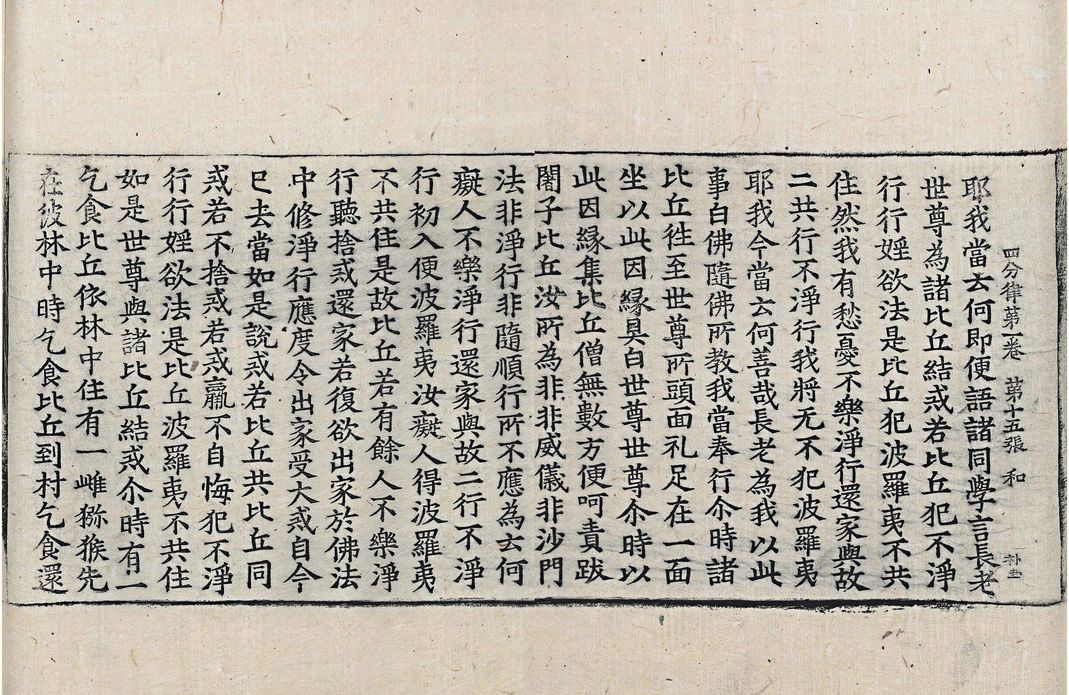 四分律第一卷 第十五張 和
耶我當云何即便語諸同學言長老
世尊為諸比丘結戒若比丘犯不淨
行行婬欲法是比丘犯波羅夷不共
住然我有愁憂不樂淨行還家與故
二共行不淨行我將无不犯波羅夷
耶我今當云何善哉長老為我以此
事白佛隨佛所教我當奉行尒時諸
比丘徃至世尊所頭面礼足在一面
坐以此因緣具白世尊世尊尒時以
此因緣集比丘僧無數方便呵責跋
闍子比丘汝所為非非威儀非沙門
法非淨行非隨順行所不應為云何
癡人不樂淨行還家與故二行不淨
行初入便波羅夷汝癡人得波羅夷
不共住是故比丘若有餘人不樂淨
行聽捨戒還家若復欲出家於佛法
中修淨行應度令出家受大戒自今
已去當如是說戒若比丘共比丘同
戒若不捨戒若戒羸不自悔犯不淨
行行婬欲法是比丘波羅夷不共住
如是世尊與諸比丘結戒尒時有一
乞食比丘依林中住有一雌獼猴先
在彼林中時乞食比丘到村乞食還